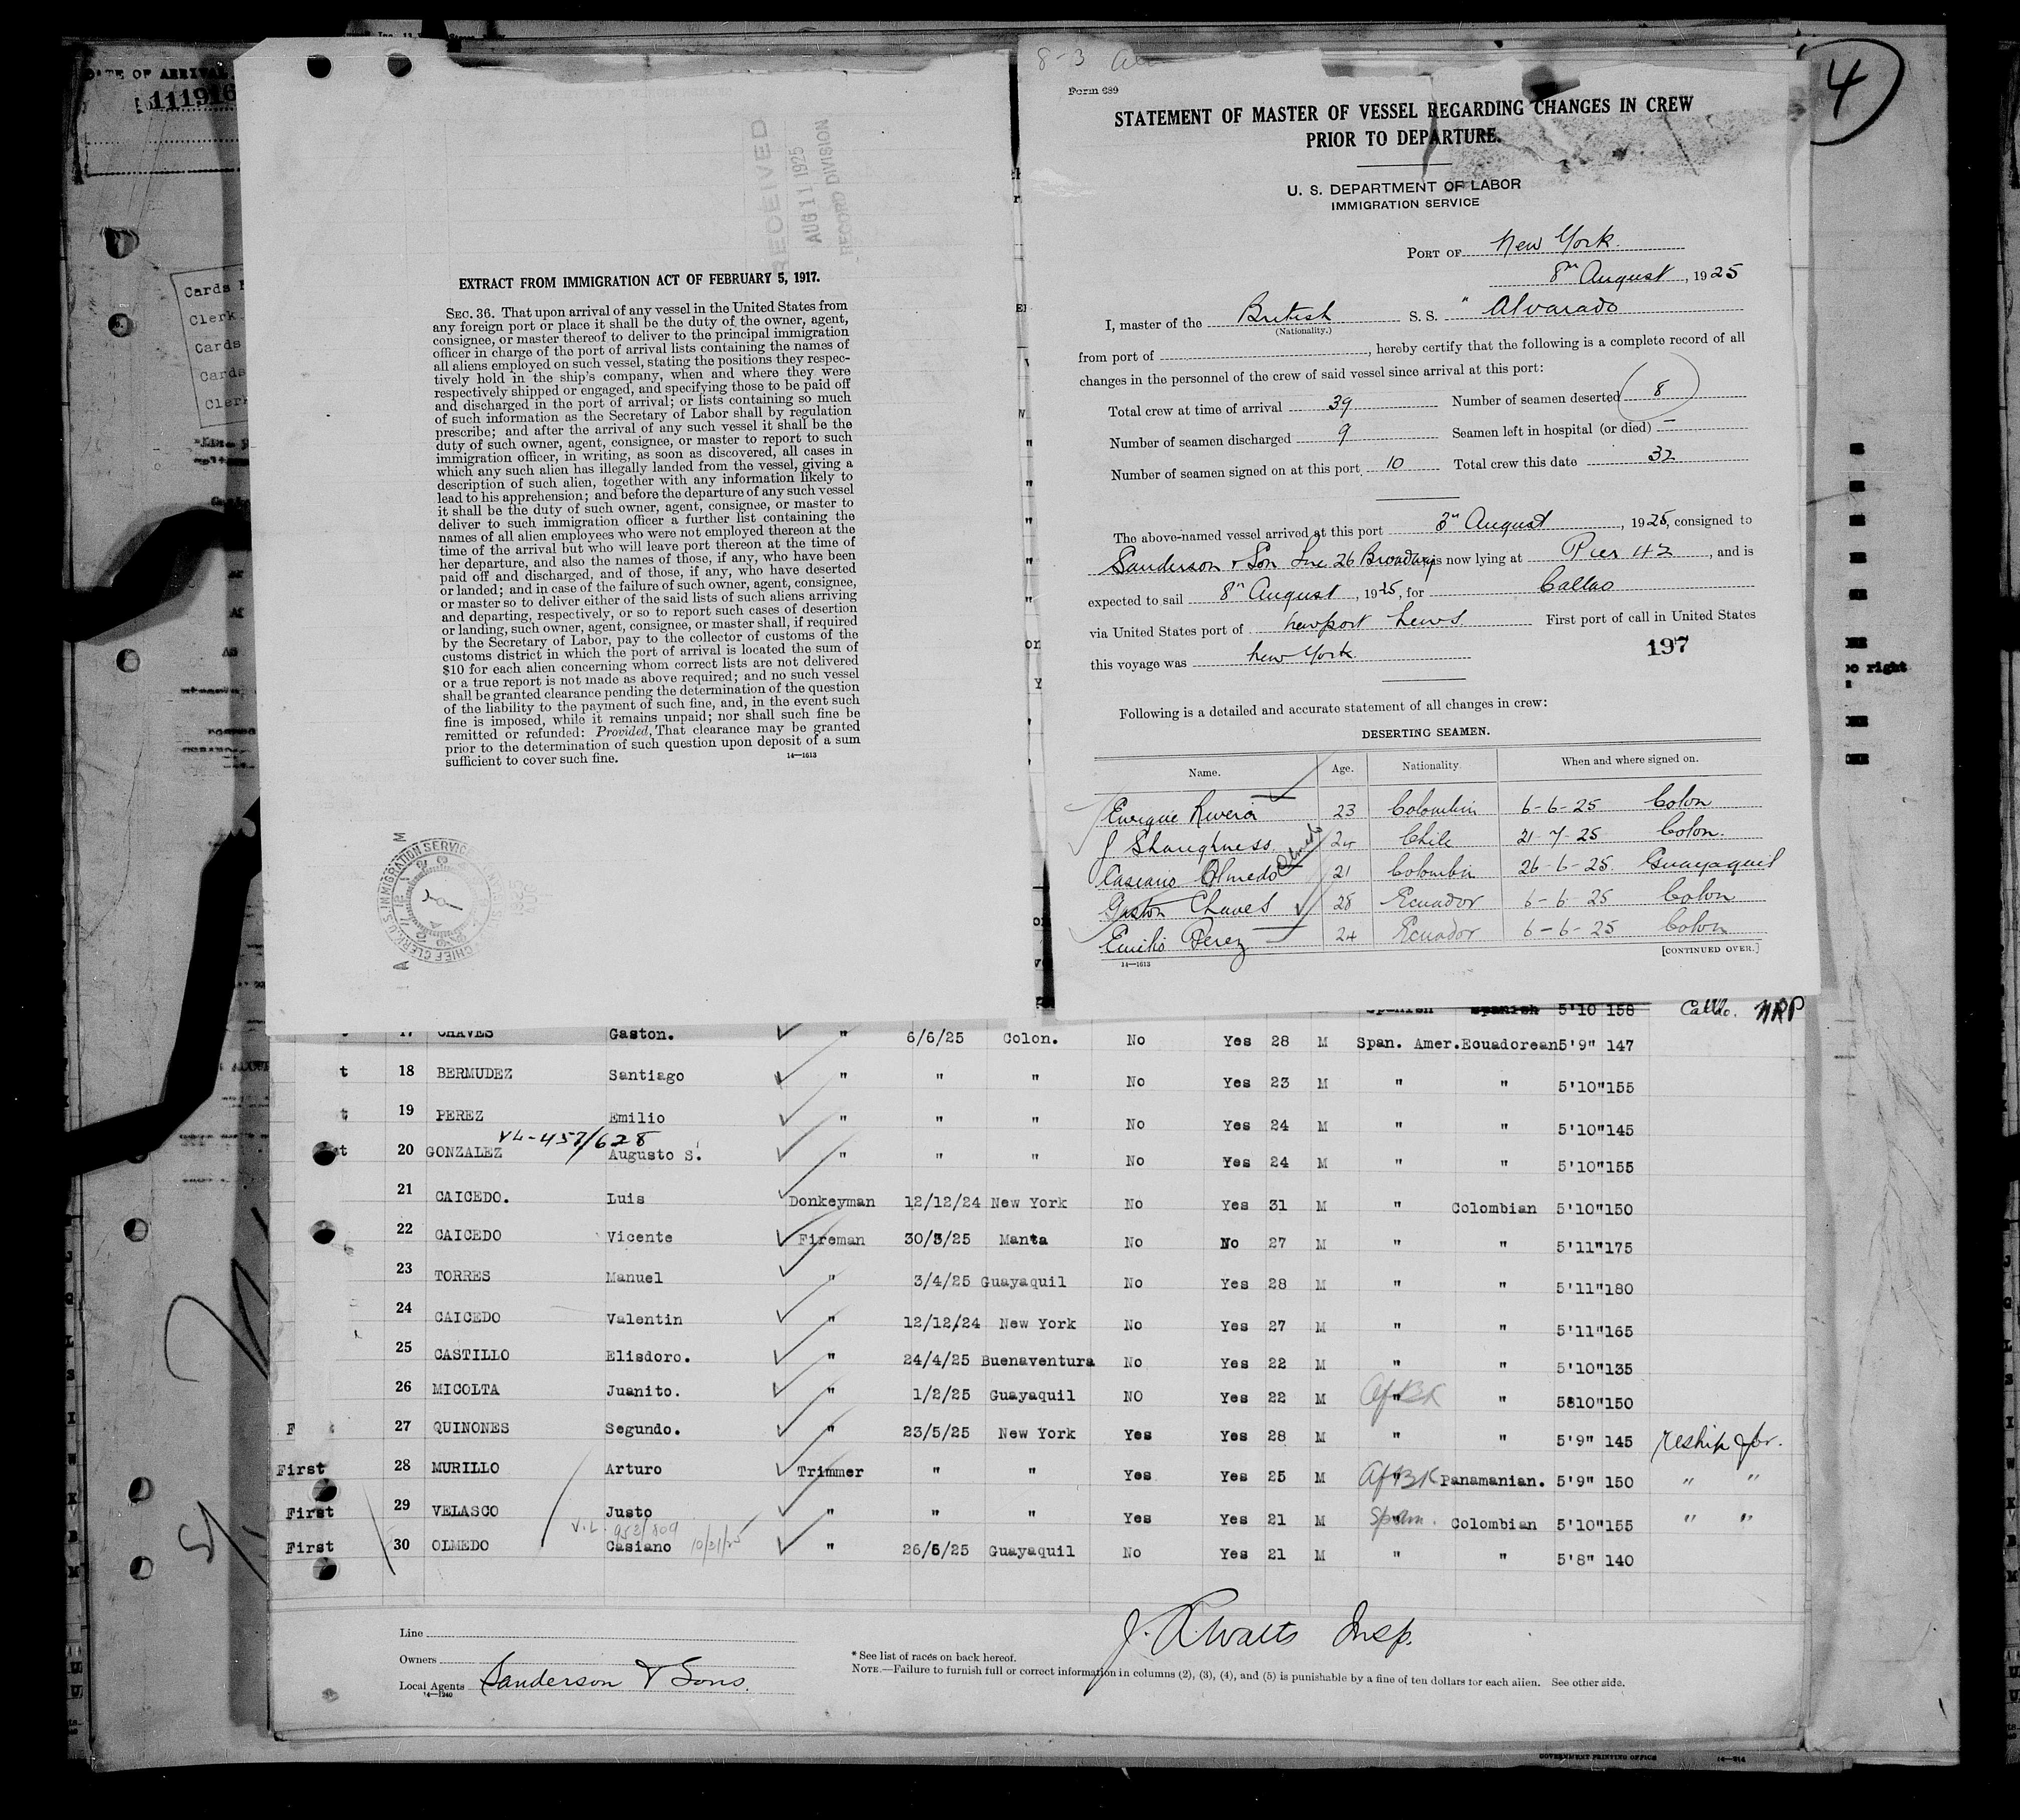 DATE OF ARRIVAL
111916
4
Cards
Clerk
Cards
Cards
Clerk
RECEIVED
AUG 11 1925
RECORD DIVISION
EXTRACT FROM IMMIGRATION ACT OF FEBRUARY 5, 1917.
SEC. 36. That upon arrival of any vessel in the United States from
any foreign port or place it shall be the duty of the owner, agent,
consignee, or master thereof to deliver to the principal immigration
officer in charge of the port of arrival lists containing the names of
all aliens employed on such vessel, stating the positions they respec-
tively hold in the ship's company, when and where they were
respectively shipped or engaged, and specifying those to be paid off
and discharged in the port of arrival; or lists containing so much
of such information as the Secretary of Labor shall by regulation
prescribe; and after the arrival of any such vessel it shall be the
duty of such owner, agent, consignee, or master to report to such
immigration officer, in writing, as soon as discovered, all cases in
which any such alien has illegally landed from the vessel, giving a
description of such alien, together with any information likely to
lead to his apprehension; and before the departure of any such vessel
it shall be the duty of such owner, agent, consignee, or master to
deliver to such immigration officer a further list containing the
names of all alien employees who were not employed thereon at the
time of the arrival but who will leave port thereon at the time of
her departure, and also the names of those, if any, who have been
paid off and discharged, and of those, if any, who have deserted
or landed; and in case of the failure of such owner, agent, consignee,
or master so to deliver either of the said lists of such aliens arriving
and departing, respectively, or so to report such cases of desertion
or landing, such owner, agent, consignee, or master shall, if required
by the Secretary of Labor, pay to the collector of customs of the
customs district in which the port of arrival is located the sum of
$10 for each alien concerning whom correct lists are not delivered
or a true report is not made as above required; and no such vessel
shall be granted clearance pending the determination of the question
of the liability to the payment of such fine, and, in the event such
fine is imposed, while it remains unpaid; nor shall such fine be
remitted or refunded: Provided, That clearance may be granted
prior to the determination of such question upon deposit of a sum
sufficient to cover such fine.
14—1613
CHIEF CLERK, U.S. IMMIGRATION SERVICE
8-3
Form 689
STATEMENT OF MASTER OF VESSEL REGARDING CHANGES IN CREW
PRIOR TO DEPARTURE.
U. S. DEPARTMENT OF LABOR
IMMIGRATION SERVICE
PORT OF New York
8th August, 1925
I, master of the British S. S. " Alvarado
(Nationality.)
from port of , hereby certify that the following is a complete record of all
changes in the personnel of the crew of said vessel since arrival at this port:
Total crew at time of arrival 39 Number of seamen deserted 8
Number of seamen discharged 9 Seamen left in hospital (or died) —
Number of seamen signed on at this port 10 Total crew this date 32
The above-named vessel arrived at this port 3rd August, 1925, consigned to
Sanderson & Son Inc 26 Broadway is now lying at Pier 42, and is
expected to sail 8th August, 1925, for Callao
via United States port of Newport News First port of call in United States
this voyage was New York
197
Following is a detailed and accurate statement of all changes in crew:
DESERTING SEAMEN.
Name. Age. Nationality. When and where signed on.
Enrique Rivera 23 Colombia 6-6-25 Colon
J Shaughness 24 Chile 21-7-25 Colon.
Casiano Olmedo Olmedo 21 Colombia 26-6-25. Guayaquil
Gaston Chaves 28 Ecuador 6-6-25 Colon
Emilio Perez 24 Ecuador 6-6-25 Colon
14—1613 [CONTINUED OVER.]
Spanish Spanish 5'10 158 Callao. NRP
17 CHAVES Gaston. " 6/6/25 Colon. No Yes 28 M Span. Amer. Ecuadorean 5'9" 147
t 18 BERMUDEZ Santiago " " " No Yes 23 M " " 5'10" 155
t 19 PEREZ Emilio " " " No Yes 24 M " " 5'10" 145
VL-457/628
st 20 GONZALEZ Augusto S. " " " No Yes 24 M " " 5'10" 155
21 CAICEDO. Luis Donkeyman 12/12/24 New York No Yes 31 M " Colombian 5'10" 150
22 CAICEDO Vicente Fireman 30/3/25 Manta No No 27 M " " 5'11" 175
23 TORRES Manuel " 3/4/25 Guayaquil No Yes 28 M " " 5'11" 180
24 CAICEDO Valentin " 12/12/24 New York No Yes 27 M " " 5'11" 165
25 CASTILLO Elisdoro. " 24/4/25 Buenaventura No Yes 22 M " " 5'10" 135
26 MICOLTA Juanito. " 1/2/25 Guayaquil NO Yes 22 M " AfBK " 5'10" 150
F 27 QUINONES Segundo. " 23/5/25 New York Yes Yes 28 M " " 5'9" 145 reship for.
First 28 MURILLO Arturo Trimmer " " Yes Yes 25 M " AfBK Panamanian. 5'9" 150 " "
First 29 VELASCO Justo " " " Yes Yes 21 M " Span. Colombian 5'10" 155 " "
V.L. 953/809 10/21/25
First 30 OLMEDO Casiano " 26/6/25 Guayaquil No Yes 21 M " " 5'8" 140
Line
Owners
Local Agents Sanderson & Sons.
14—1240
* See list of races on back hereof.
NOTE.—Failure to furnish full or correct information in columns (2), (3), (4), and (5) is punishable by a fine of ten dollars for each alien. See other side.
J. R. Watts Insp.
GOVERNMENT PRINTING OFFICE 14—214